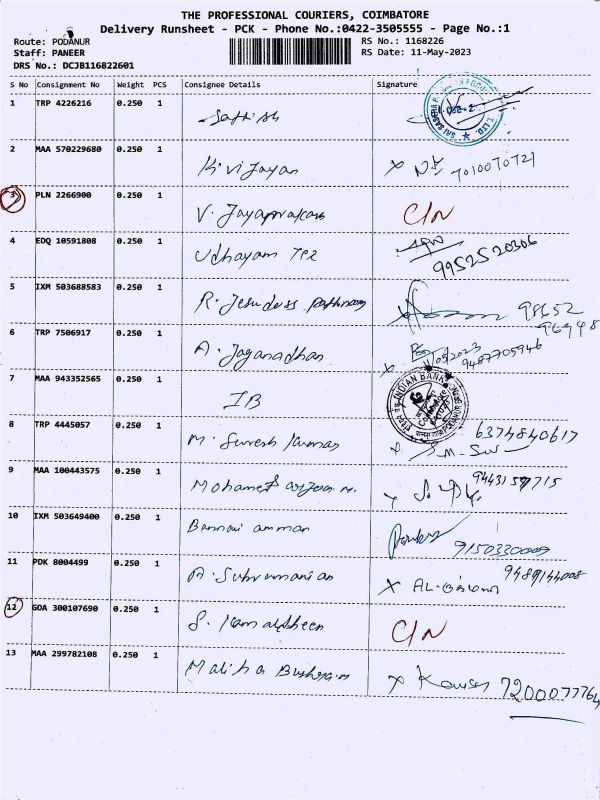 THE PROFESSIONAL COURIERS, COIMBATORE
Delivery Runsheet - PCK - Phone No.:0422-3505555 - Page No.:1
Route: PODANUR
Staff: PANEER
DRS No.: DCJB116822601
RS No.: 1168226
RS Date: 11-May-2023
S No Consignment No Weight PCS Consignee Details Signature
1 TRP 4226216 0.250 1 Sathish
2 MAA 570229680 0.250 1 K. Vijayan 7010070721
3 PLN 2266900 0.250 1 V. Jayaprakash C/N
4 EDQ 10591808 0.250 1 Udhayam Tez 9952520306
5 IXM 503688583 0.250 1 R. Jesudoss 98652
96948
6 TRP 7506917 0.250 1 A. Jaganadhan 11/05/2023
9487705946
7 MAA 943352565 0.250 1 IB INDIAN BANK
8 TRP 4445057 0.250 1 M. Suresh Kumar 6374840617
9 MAA 100443575 0.250 1 Mohamed 9443159715
10 IXM 503649400 0.250 1 Bannari amman 9150330009
11 PDK 8004499 0.250 1 A. Subramanian 9489144008
12 GOA 300107690 0.250 1 S. Kamaldheen C/N
13 MAA 299782108 0.250 1 Maliha Kauser 7200077764